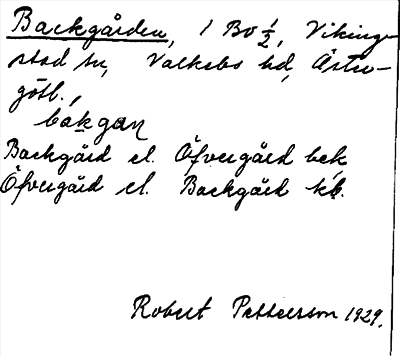 Backgården, 1 Bo ½, Viking-
stad sn, Valkebo hd, Öster-
götl.,
bakgan
Backgård el. Öfvergård bek
Öfvergård el. Backgård kb.
Robert Pettersson 1929.